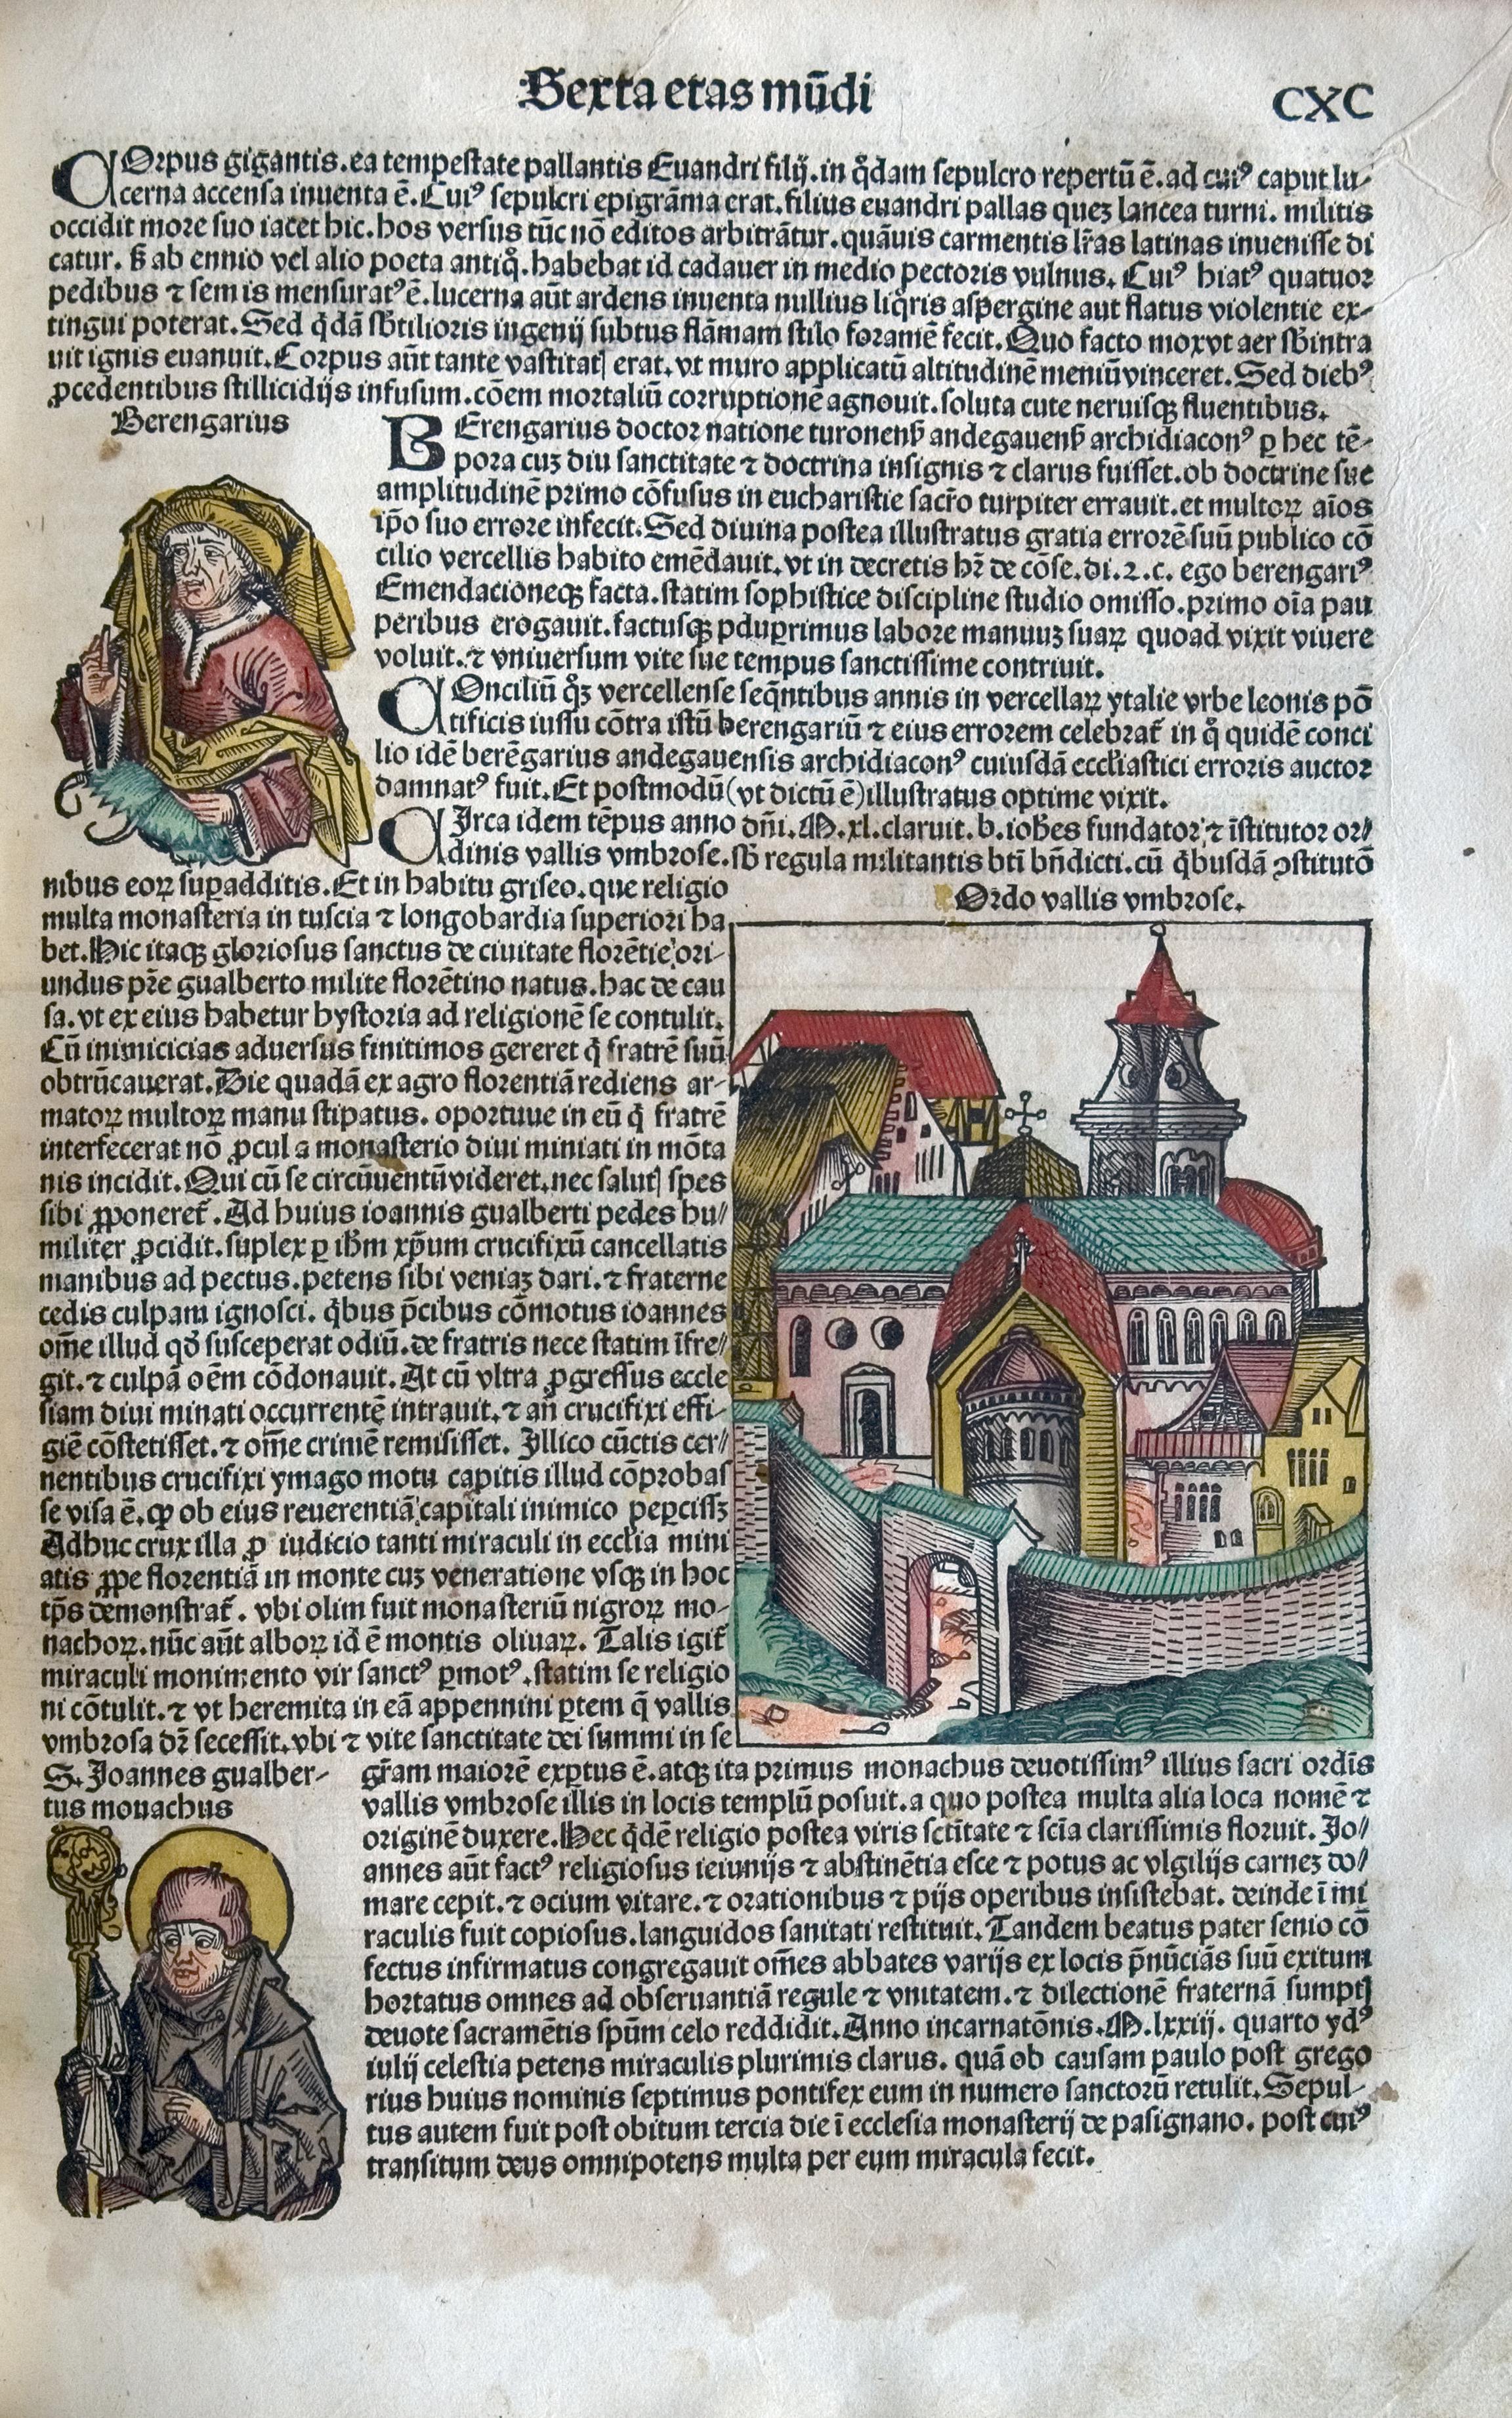 Sexta etas mūdi
CXC
COrpus gigantis.ea tempestate pallantis Euandri filij.in q̊dam sepulcro repertū ē.ad cuiꝰ caput lu-
cerna accensa inuenta ē.Cuiꝰ sepulcri epigrāma erat.filius euandri pallas quez lancea turni. militis
occidit more suo iacet hic.hos versus tūc nō editos arbitrātur.quāuis carmentis lr̄as latinas inuenisse di
catur. ß ab ennio vel alio poeta antiq̊.habebat id cadauer in medio pectoris vulnus. Cuiꝰ hiatꝰ quatuor
pedibus ⁊ semis mensuratꝰ ē.lucerna aūt ardens inuenta nullius liq̊ris aspergine aut flatus violentie ex-
tingui poterat.Sed q̇dā sb̄tilioris ingenij subtus flāmam stilo foramē fecit.Quo facto mox vt aer sb̄intra
uit ignis euanuit.Corpus aūt tante vastitatꝭ erat.vt muro applicatū altitudinē meniū vinceret.Sed diebꝰ
ꝓcedentibus stillicidijs infusum.cōem mortaliū corruptionē agnouit.soluta cute neruisqꝫ fluentibus.
Berengarius
BErengarius doctor natione turonenß andegauenß archidiaconꝰ ꝑ hec tē-
pora cuz diu sanctitate ⁊ doctrina insignis ⁊ clarus fuisset.ob doctrine sue
amplitudinē primo cōfusus in eucharistie sacr̄o turpiter errauit.et multoꝝ aīos
ip̄o suo errore infecit.Sed diuina postea illustratus gratia errorē suū publico cō
cilio vercellis habito emēdauit.vt in decretis hr̄ de cōse.di.2.c. ego berengariꝰ
Emendacioneqꝫ facta.statim sophistice discipline studio omisso.primo oīa pau
peribus erogauit.factusqꝫ pduꝑrimus labore manuuz suaꝝ quoad vixit viuere
voluit.⁊ vniuersum vite sue tempus sanctissime contriuit.
COnciliū q̊ꝫ vercellense seq̄ntibus annis in vercellaꝝ ytalie vrbe leonis pō
tificis iussu cōtra istū berengariū ⁊ eius errorem celebrat̄ in q̊ quidē conci
lio idē berēgarius andegauensis archidiaconꝰ cuiusdā eccl̄iastici erroris auctor
damnatꝰ fuit.Et postmodū(vt dictū ē)illustratus optime vixit.
CIrca idem tēpus anno dn̄i.M.xl.claruit.b.ioh̄es fundator,⁊ īstitutor or/
dinis vallis vmbrose.sb̄ regula militantis bt̄i bn̄dicti.cū q̇busdā ꝯstitutō
nibus eoꝝ suꝑadditis.Et in habitu griseo.que religio
Ordo vallis vmbrose.
multa monasteria in tuscia ⁊ longobardia superiori ha
bet.Hic itaqꝫ gloriosus sanctus de ciuitate florētie ori-
undus pr̄e gualberto milite florētino natus.hac de cau
sa.vt ex eius habetur hystoria ad religionē se contulit.
Cū inimicicias aduersus finitimos gereret q̇ fratrē suū
obtrūcauerat.Die quadā ex agro florentiā rediens ar-
matoꝝ multoꝝ manu stipatus. oportuue in eū q̇ fratrē
interfecerat nō ꝓcul a monasterio diui miniati in mōta
nis incidit.Qui cū se circūuentū videret.nec salutꝭ spes
sibi ꝓponeret̄.Ad huius ioannis gualberti pedes hu/
militer ꝓcidit.suplex ꝑ ih̄m xp̄um crucifixū cancellatis
manibus ad pectus.petens sibi veniaz dari.⁊ fraterne
cedis culpam ignosci. q̇bus p̄cibus cōmotus ioannes
om̄e illud qd̊ susceperat odiū.de fratris nece statim īfre/
git.⁊ culpā oēm cōdonauit.At cū vltra ꝓgressus eccle
siam diui minati occurrentē intrauit.⁊ an̄ crucifixi effi-
giē cōstetisset.⁊ om̄e crimē remisisset. Illico cūctis cer/
nentibus crucifixi ymago motu capitis illud cōprobas
se visa ē.ꝙ ob eius reuerentiā capitali inimico peꝑcissꝫ
Adhuc crux illa ꝓ iudicio tanti miraculi in eccl̄ia mini
atis ꝓpe florentiā in monte cuz veneratione vsqꝫ in hoc
tp̄s demonstrat̄. vbi olim fuit monasteriū nigroꝝ mo-
nachoꝝ.nūc aūt alboꝝ id ē montis oliuaꝝ. Talis igit̄
miraculi monimento vir sanctꝰ ꝑmotꝰ.statim se religio
ni cōtulit.⁊ vt heremita in eā appennini ꝑtem q̄ vallis
vmbrosa dr̄ secessit.vbi ⁊ vite sanctitate dei summi in se
S. Joannes gualber-
tus monachus
gr̄am maiorē exꝑtus ē.atqꝫ ita primus monachus deuotissimꝰ illius sacri ordīs
vallis vmbrose illis in locis templū posuit.a quo postea multa alia loca nomē ⁊
originē duxere.Hec q̇dē religio postea viris sct̄itate ⁊ scīa clarissimis floruit. Jo/
annes aūt factꝰ religiosus ieiunijs ⁊ abstinētia esce ⁊ potus ac vlgilijs carnez do/
mare cepit.⁊ ocium vitare.⁊ orationibus ⁊ pijs operibus insistebat. deinde ī mi
raculis fuit copiosus.languidos sanitati restituit.Tandem beatus pater senio cō
fectus infirmatus congregauit om̄es abbates varijs ex locis p̄nūciās suū exitum
hortatus omnes ad obseruantiā regule ⁊ vnitatem.⁊ dilectionē fraternā sumptꝭ
deuote sacramētis spūm celo reddidit.Anno incarnatōnis.M.lxxiij. quarto ydꝰ
iulij celestia petens miraculis plurimis clarus. quā ob causam paulo post grego
rius huius nominis septimus pontifex eum in numero sanctorū retulit.Sepul-
tus autem fuit post obitum tercia die ī ecclesia monasterij de pasignano. post cuiꝰ
transitum deus omnipotens multa per eum miracula fecit.